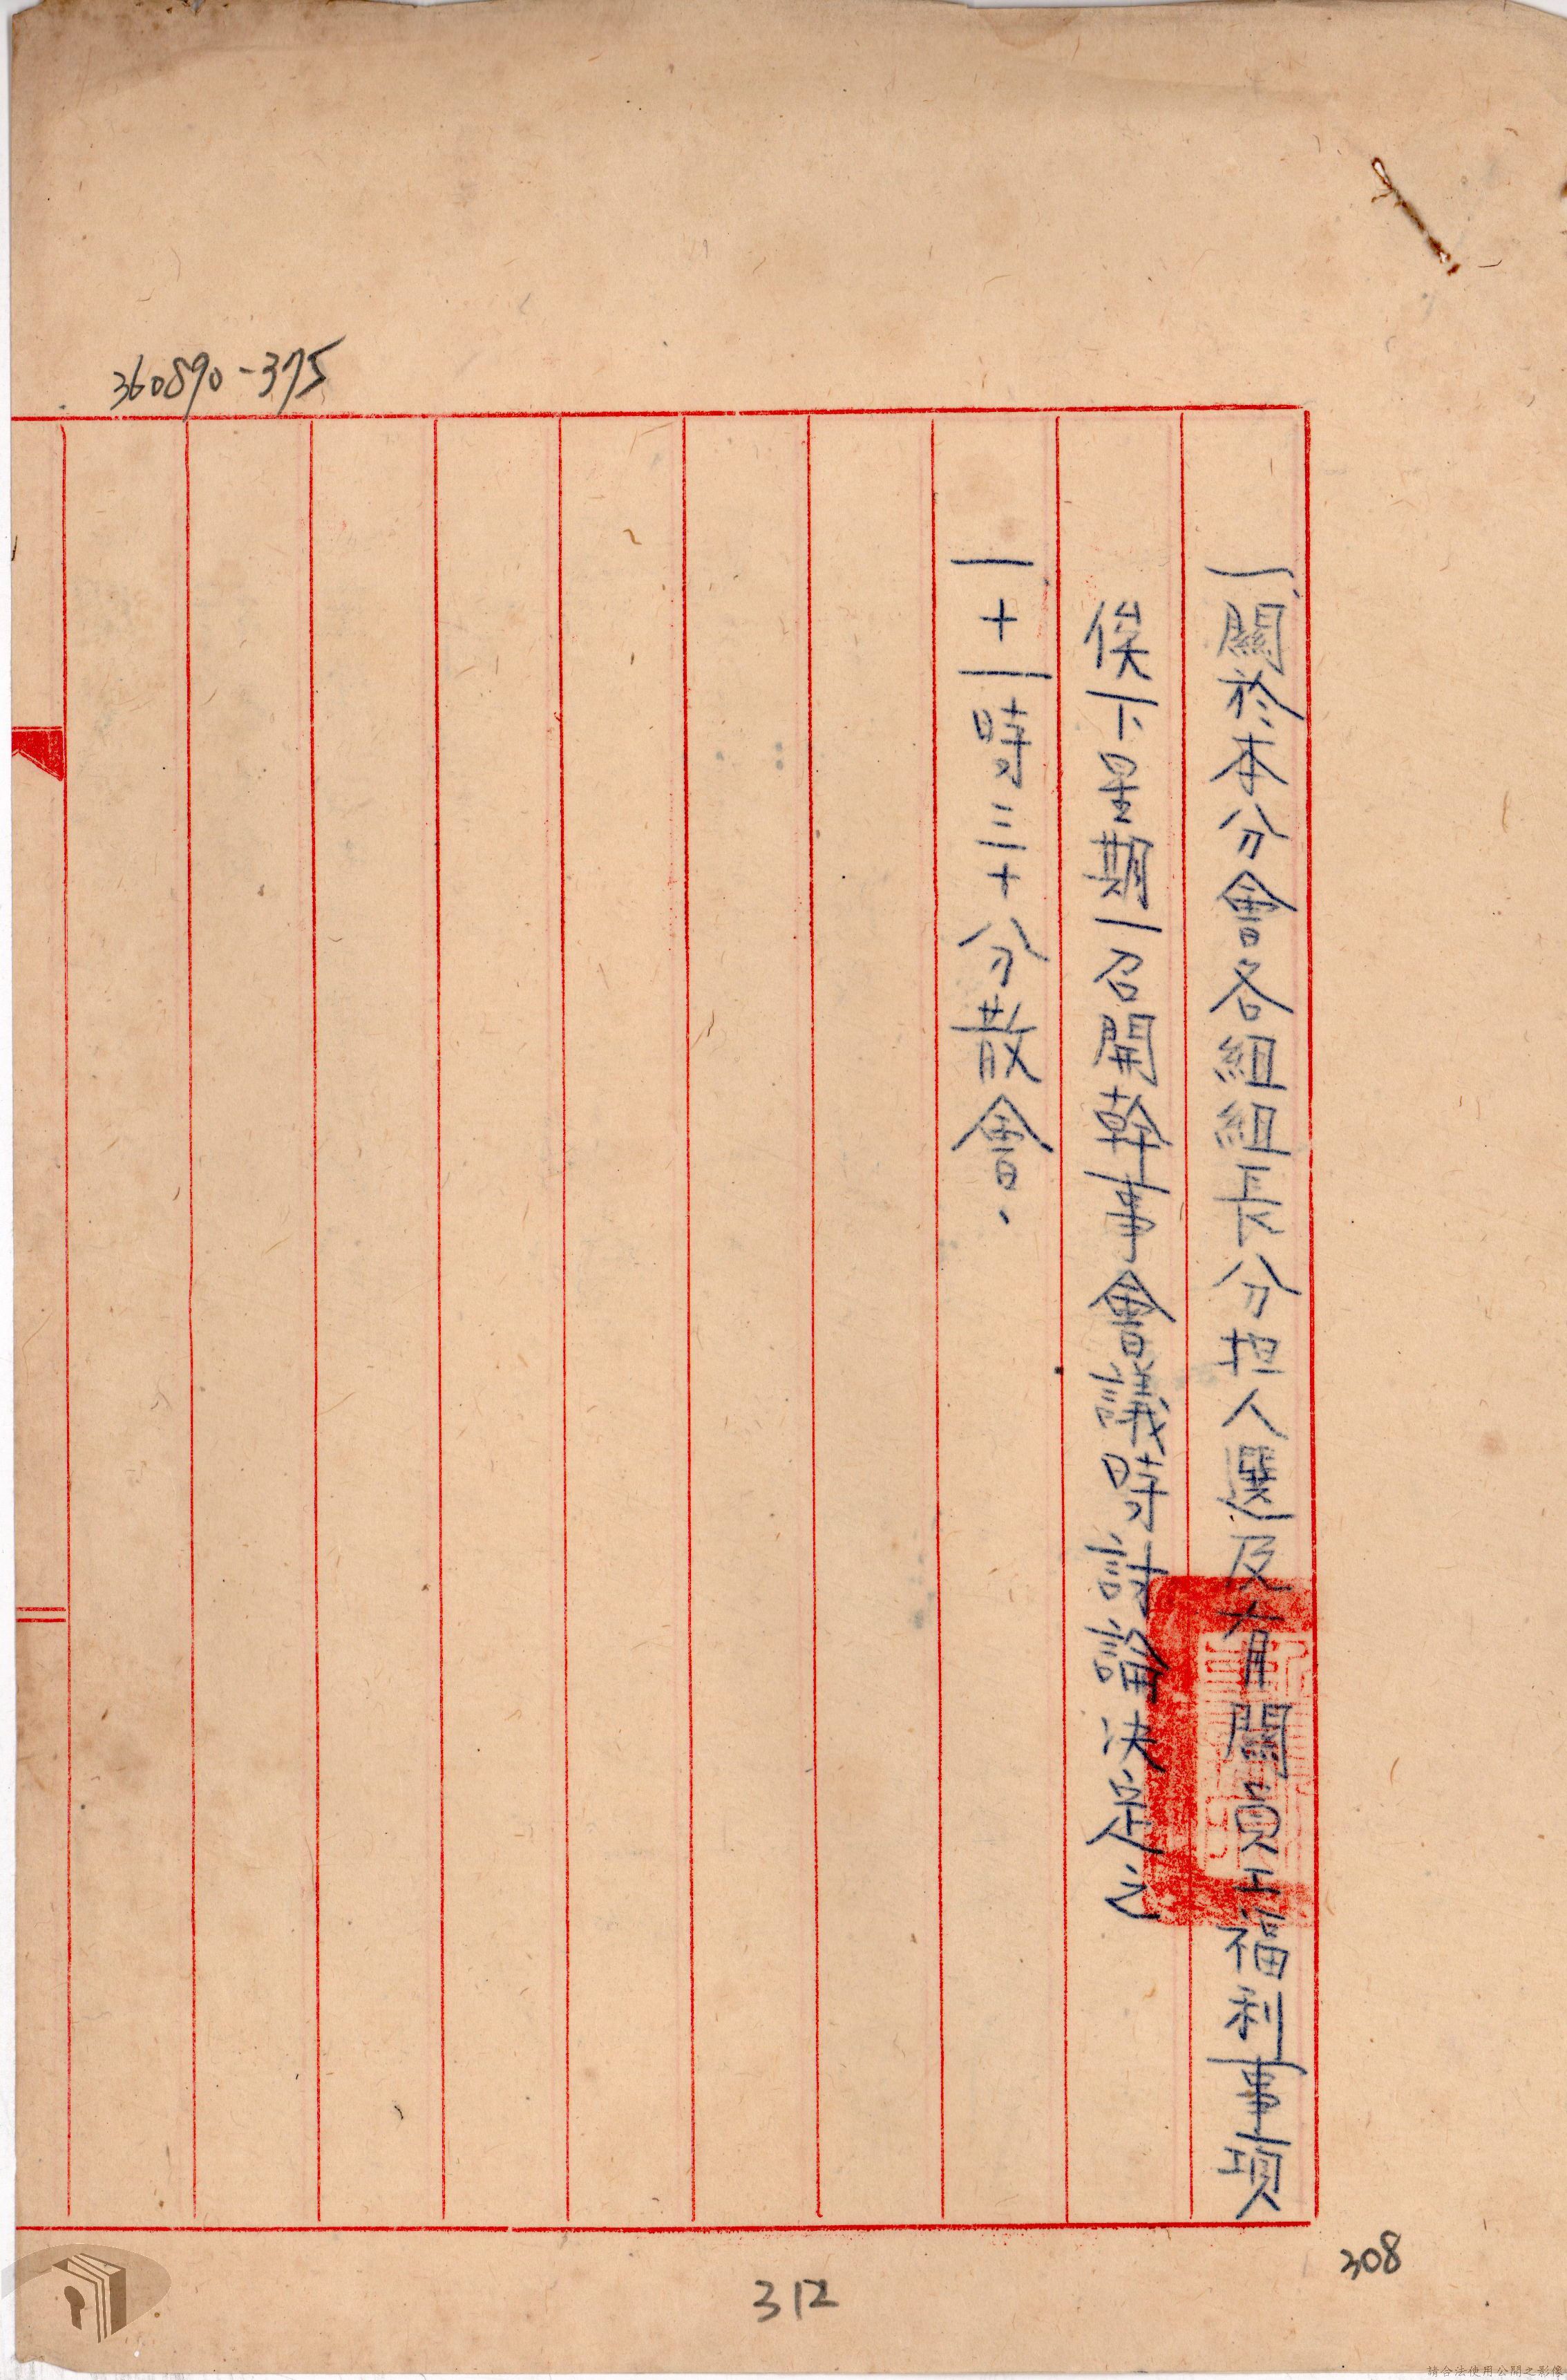 360890-375
一、關於本分會各組組長分担人選及有關員工福利事項
俟下星期一召開幹事會議時討論決定之
一十一時三十分散會、
308
312
請合法使用公開之影像